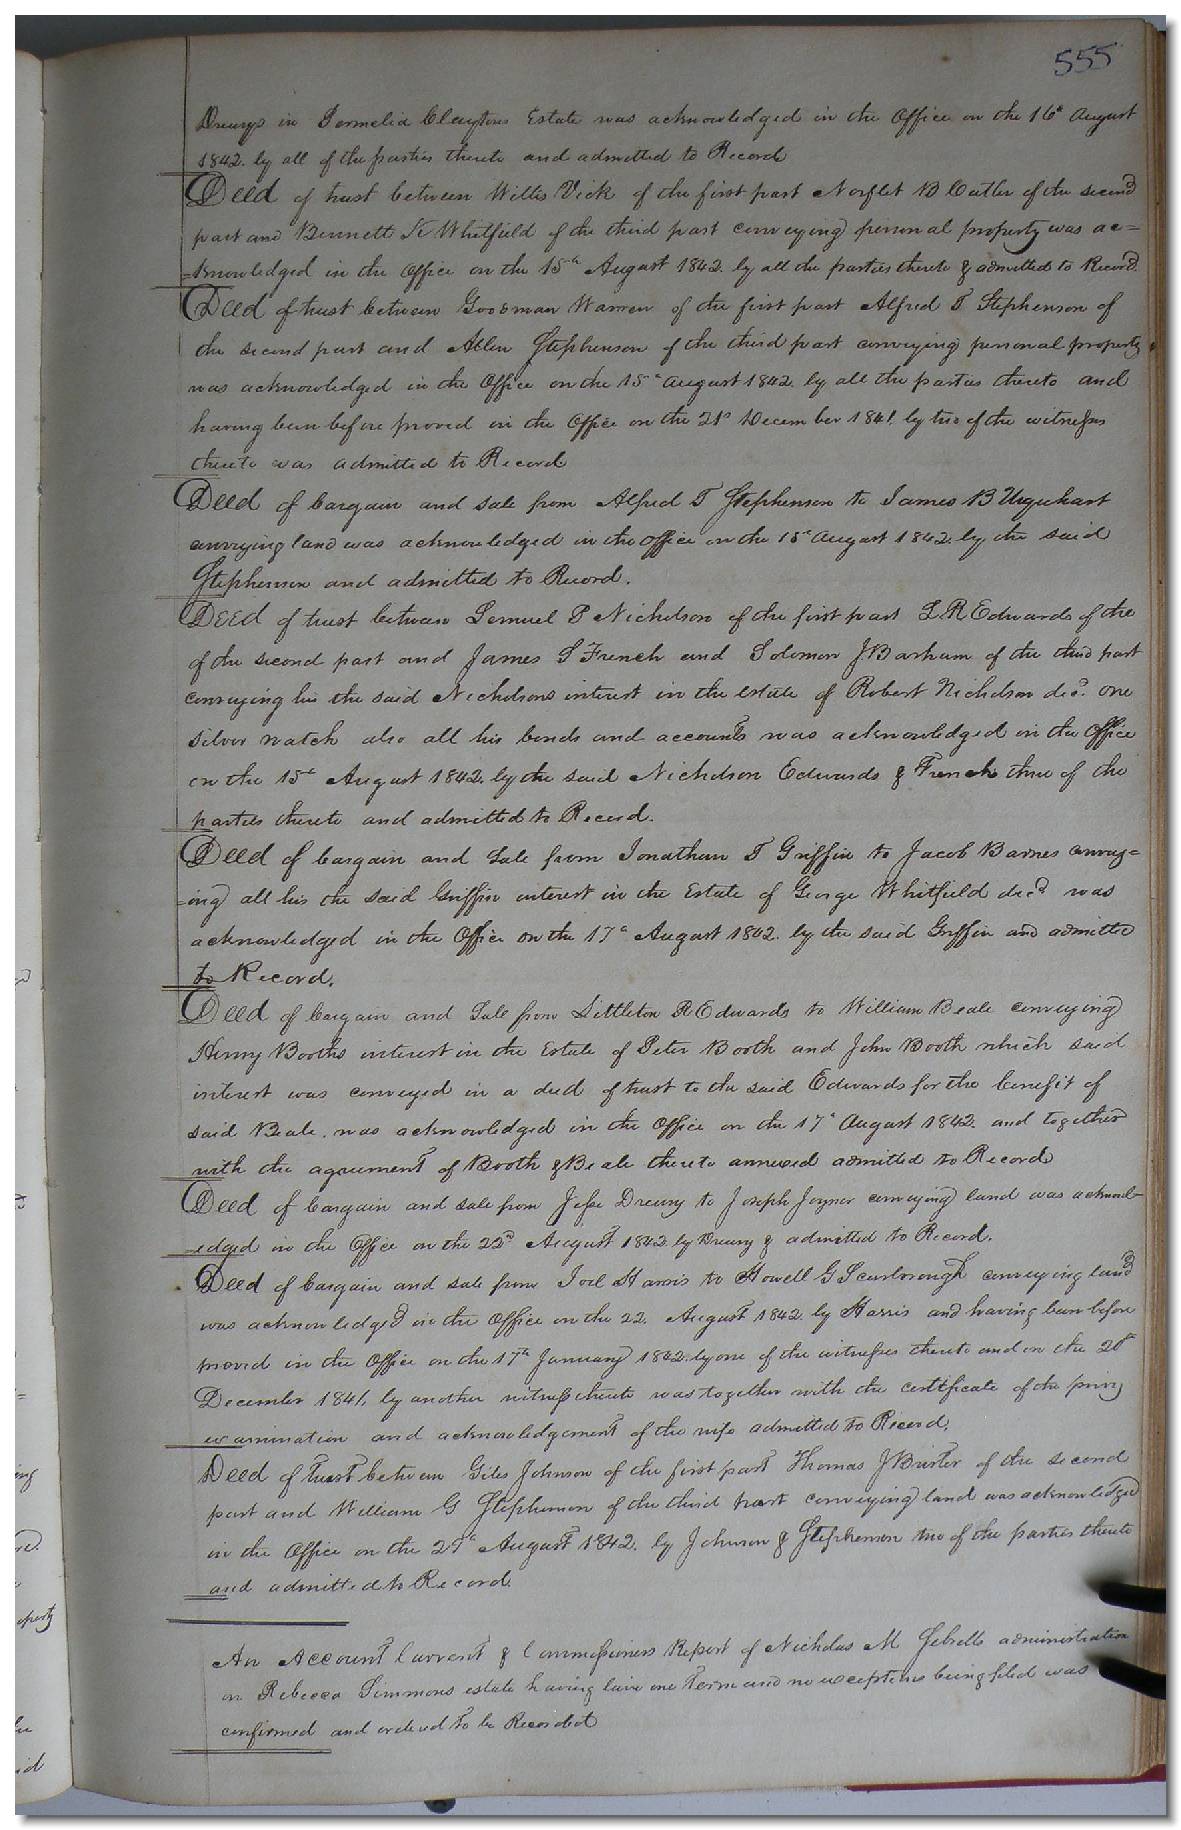 555
Drewrys in Permelia Claytons Estate was acknowledged in the Office on the 16th August
1842. by all of the parties thereto and admitted to Record
Deed of trust between Willis Vick of the first part Norflet B Cutler of the second
part and Bennett K Whitfield of the third part conveying personal property was ac=
=knowledged in the Office on the 15th August 1842. by all the parties thereto & admitted to Record.
Deed of trust between Goodman Warren of the first part Alfred T Stephenson of
the second part and Allen Stephenson of the third part conveying personal property
was acknowledged in the Office on the 15th August 1842. by all the parties thereto and
having been before proved in the Office on the 21st December 1841. by two of the witnesses
thereto was admitted to Record
Deed of bargain and sale from Alfred T Stephenson to James B Urquhart
conveying land was acknowledged in the office on the 15th August 1842. by the said
Stephenson and admitted to Record.
Deed of trust between Lemuel P Nicholson of the first part L R Edwards of the
of the second part and James S French and Solomon J Barham of the third part
conveying his the said Nicholsons interest in the estate of Robert Nicholson decd. one
silver watch also all his bonds and accounts was acknowledged in the Office
on the 15th August 1842. by the said Nicholson Edwards & French three of the
parties thereto and admitted to Record.
Deed of bargain and Sale from Jonathan T Griffin to Jacob Barnes convey=
=ing all his the said Griffin interest in the Estate of George Whitfield decd was
acknowledged in the Office on the 17th August 1842. by the said Griffin and admitted
to Record.
Deed of bargain and Sale from Littleton R Edwards to William Beale conveying
Henry Booths interest in the Estate of Peter Booth and John Booth which said
interest was conveyed in a deed of trust to the said Edwards for the benefit of
said Beale. was acknowledged in the Office on the 17th August 1842. and together
with the agreement of Booth & Beale thereto annexed admitted to Record
Deed of bargain and sale from Jesse Drewry to Joseph Joyner conveying land was acknowl-
edged in the Office on the 22nd August 1842. by Drewry & admitted to Record.
Deed of bargain and sale from Joel Harris to Howell G Scarborough conveying land
was acknowledged in the Office on the 22. August 1842. by Harris and having been before
proved in the Office on the 17th January 1842. by one of the witnesses thereto and on the 20th
December 1841. by another witness thereto was together with the certificate of the privy
examination and acknowledgement of the wife admitted to Record.
Deed of trust between Giles Johnson of the first part Thomas J of the second
part and William G Stephenson of the third part conveying land was acknowledged
in the Office on the 29th August 1842. by Johnson & Stephenson two of the parties thereto
and admitted to Record.
An Account Current & Commissioners Report of Nicholas M Sebrells administration
on Rebecca Simmons estate having lain one Term and no exceptions being filed was
confirmed and ordered to be Recorded